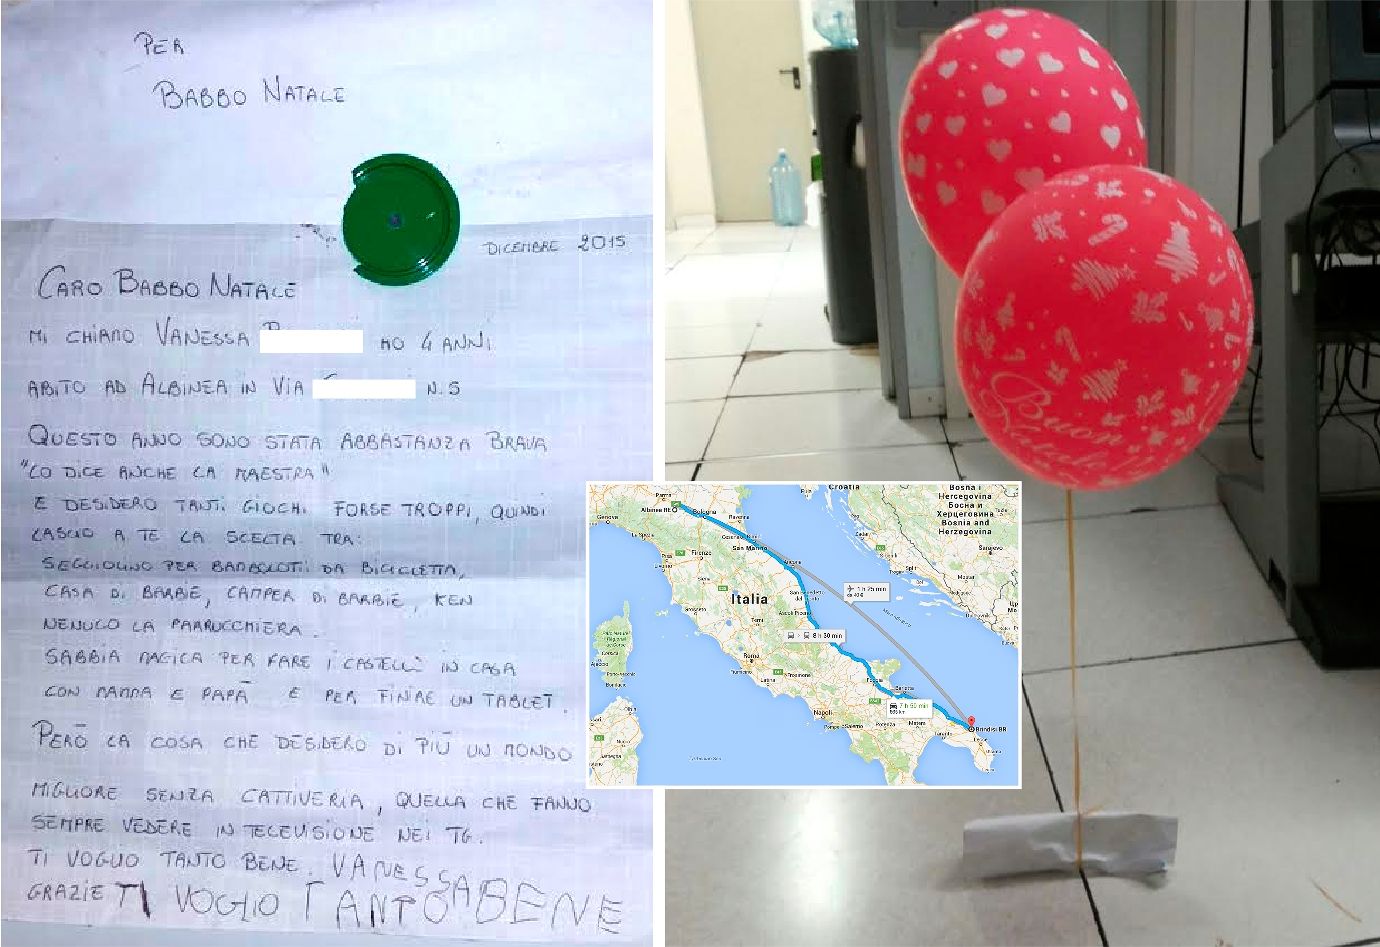 PER
BABBO NATALE
DICEMBRE 2015
CARO BABBO NATALE
MI CHIAMO VANESSA HO 4 ANNI
ABITO AD ALBINEA IN VIA N. 5
QUESTO ANNO SONO STATA ABBASTANZA BRAVA
"LO DICE ANCHE LA MAESTRA"
E DESIDERO TANTI GIOCHI FORSE TROPPI, QUINDI
LASCIO A TE LA SCELTA TRA:
SEGGIOLINO PER BAMBOLOTTI DA BICICLETTA,
CASA DI BARBIE, CAMPER DI BARBIE, KEN
NENUCO LA PARRUCCHIERA.
SABBIA MAGICA PER FARE I CASTELLI IN CASA
CON MAMMA E PAPÀ E PER FINIRE UN TABLET.
PERÒ LA COSA CHE DESIDERO DI PIÙ UN MONDO
MIGLIORE SENZA CATTIVERIA, QUELLA CHE FANNO
SEMPRE VEDERE IN TELEVISIONE NEI TG.
TI VOGLIO TANTO BENE. VANESSA
GRAZIE TI VOGLIO TANTO BENE
Buon
Natale
Croatia
Bosna i
Hercegovina
Босна и
Херцеговина
Bosnia and
Herzegovina
Parma
Albinea RE
Bologna
Genova
La Spezia
Firenze
San Marino
Sarajevo
Pisa
Livorno
Ancona
Italia
1 h 25 min
8 h 30 min
Roma
Latina
Napoli
Foggia
Barletta
7 h 50 min
Potenza
Matera
Taranto
Brindisi BR
Lecce